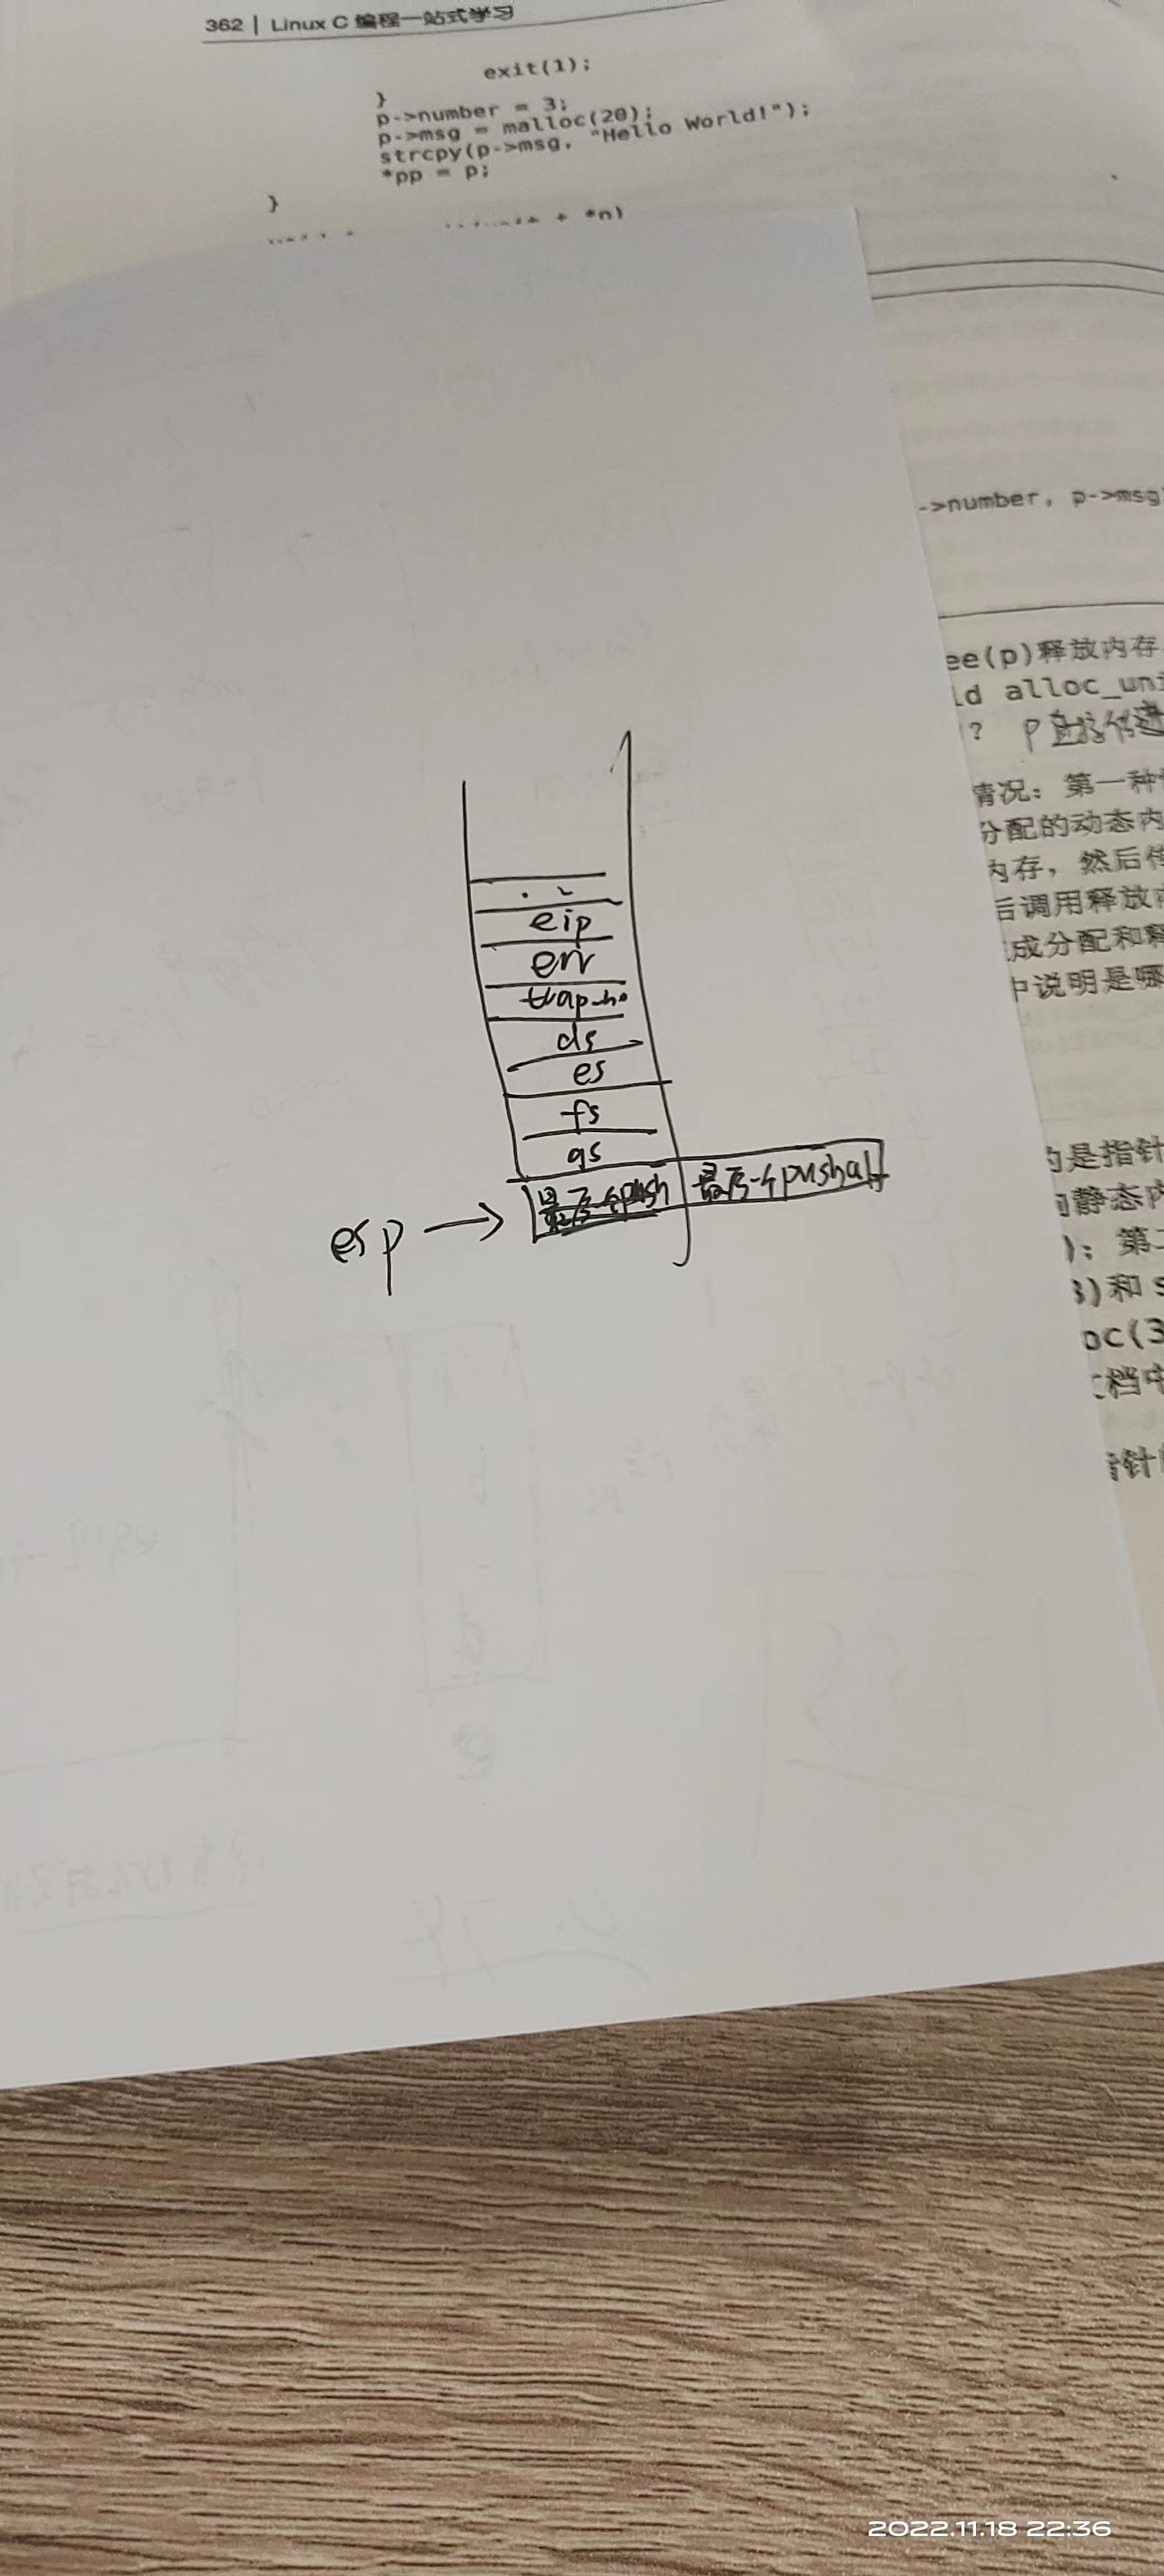 362 | Linux C 编程一站式学习
exit(1);
}
p->number = 3;
p->msg = malloc(20);
strcpy(p->msg, "Hello World!");
*pp = p;
}
*n)
->number, p->msg
ee(p)释放内存
id alloc_uni
? p直接传递
情况：第一种
分配的动态内
内存，然后
后调用释放
成分配和释
中说明是哪
的是指针
静态内
)；第二
3)和 s
oc(3
文档中
指针
eip
err
trap_no
ds
es
fs
gs
最后一个push
最后一个pushal
esp →
2022.11.18 22:36